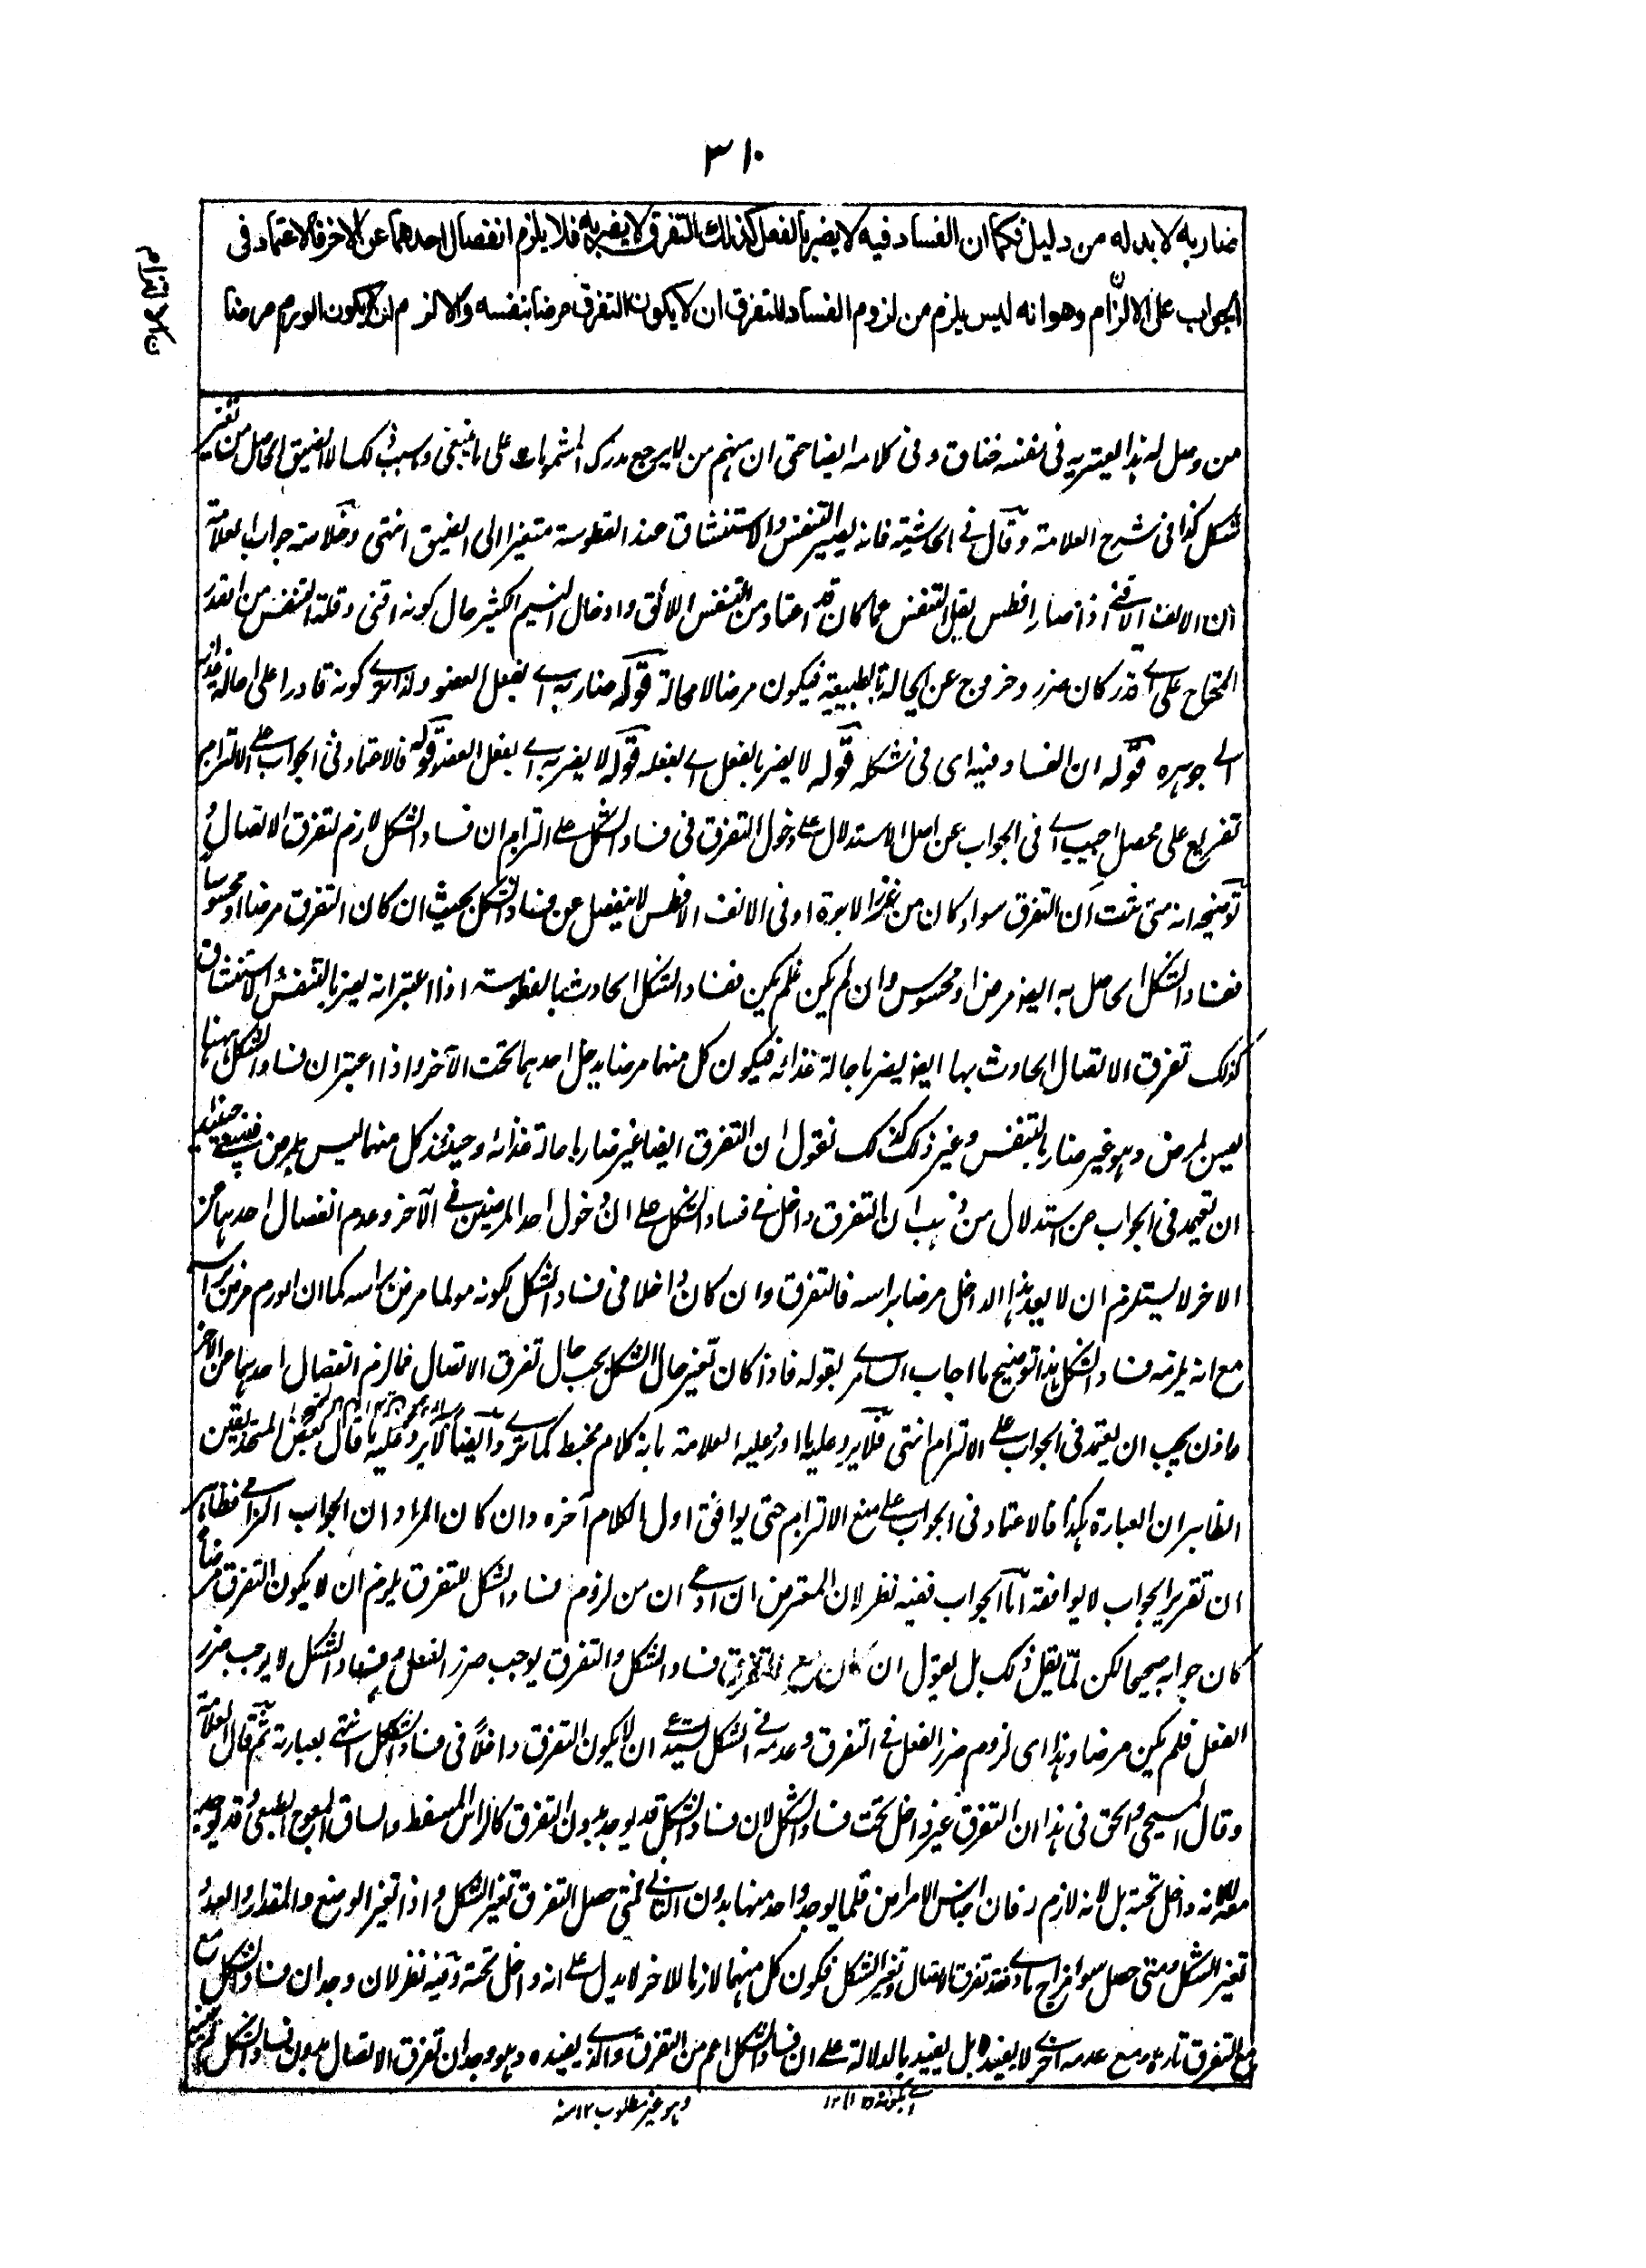 ٣١٠
ضار به لا بد له من دليل فكما ان الفساد فيه لا يضر بالفعل كذلك التفرق لا يضر به فلا يلزم انفصال احدهما عن الاخر فالاعتماد فى
الجواب على الالزام وهو انه ليس يلزم من لزوم الفساد للتفرق ان لا يكون التفرق مرضا بنفسه والا لزم ان لا يكون الورم مرضا
من وصل له هذا يعتريه فى نفسه خناق وفى كلامه ايضا حتى ان منهم من لا يرجع مدرك المشمومات على ما ينبغى وسبب ذلك الضيق الحاصل من تغير
شكل كذا فى شرح العلامة وقال فى الحاشية فانه يصير التنفس والاستنشاق عند الفطوسة متغيرا الى الضيق انتهى وخلاصة جواب العلامة
ان الانف الاقنى اذا صار افطس يقل التنفس عما كان قد اعتاد من التنفس اللائق وادخال النسيم الكثير حال كونه اقنى وقلة التنفس من القدر
المحتاج على اى قدر كان ضرر وخروج عن الحالة الطبيعية فيكون مرضا لا محالة قوله ضار به اى بفعل العضو ولذا ترى كونه قادرا على احالة غذائه
الى جوهره قوله ان الفساد فيه اى فى شكله قوله لا يضر بالفعل اى بفعله قوله لا يضر به اى بفعل العضو قوله فالاعتماد فى الجواب على الالتزام
تفريع على محصل اجيب اى فى الجواب عن اصل الاستدلال على دخول التفرق فى فساد الشكل على التزام ان فساد الشكل لازم لتفرق الاتصال و
توضيحه انه متى ثبت ان التفرق سواء كان من غرز الابرة او فى الانف الافطس لا ينفصل عن فساد الشكل بحيث ان كان التفرق مرضا او محسوسا
ففساد الشكل الحاصل به ايضو مرض او محسوس وان لم يكن فلم يكن ففساد الشكل الحادث بالفطوسة اذا اعتبر انه يضر بالتنفس والاستنشاق
كذلك تفرق الاتصال الحادث بها ايضو يضر باحالة غذائه فيكون كل منهما مرضا يدخل احدهما تحت الآخر واذا اعتبر ان فساد الشكل ههنا
ليس بمرض وهو غير ضار بالتنفس وغير ذلك كذلك نقول ان التفرق ايضا غير ضار باحالة غذائه وحينئذ كل منهما ليس بمرض فينبغى حينئذ
ان نعتمد فى الجواب عن استدلال من ذهب ان التفرق داخل فى فساد الشكل على ان دخول احد المرضين فى الآخر وعدم انفصال احدهما من
الاخر لا يستلزم ان لا يعد هذا الداخل مرضا براسه فالتفرق وان كان داخلا فى فساد الشكل لكونه مولما مرض براسه كما ان الورم مرض براسه
مع انه يلزمه فساد الشكل هذا توضيح ما اجاب السامرى بقوله فاذا كان تغير حال الشكل بحسب حال تفرق الاتصال فما لزم انفصال احدهما من الآخر
فاذن يجب ان نعتمد فى الجواب على الالتزام انتهى فلا يرد عليه ما اورد عليه العلامة بانه كلام مخبط كما ترى وايضا لا يرد عليه ما قال بعض المتحذلقين
الظاهر ان العبارة هكذا فالاعتماد فى الجواب على منع الالتزام حتى يوافق اول الكلام آخره وان كان المراد ان الجواب الزامى فظاهر
ان تقرير الجواب لا يوافقه اما الجواب ففيه نظر لان المعترض ان ادعى ان من لزوم فساد الشكل للتفرق يلزم ان لا يكون التفرق مرضا
كان جوابه صحيحا لكن لم يقل ذلك بل يقول ان فساد الشكل والتفرق يوجب ضرر الفعل وفساد الشكل لا يوجب ضرر
الفعل فلم يكن مرضا وهذا اى لزوم ضرر الفعل فى التفرق وعدمه فى الشكل يستدعى ان لا يكون التفرق داخلا فى فساد الشكل انتهى بعبارته ثم قال العلامة
وقال المسيحى والحق فى هذا ان التفرق غير داخل تحت فساد الشكل لان فساد الشكل قد يوجد بدون التفرق كالراس المسفط والساق المعوج الطبعى وقد يوجد
معه لا لانه داخل تحته بل لانه لازم ر فان اجناس الامراض قلما يوجد واحد منها بدون الثانى فمتى حصل التفرق تغير الشكل واذا تغير الوضع والمقدار والعدد
تغير الشكل ومتى حصل سوء مزاج مادى فقد تفرق الاتصال وتغير الشكل فكون كل منهما لازما للاخر لا يدل على انه داخل تحته وفيه نظر لان وجدان فساد الشكل مع
مع التفرق تارة ومع عدمه اخرى لا يفيده بل يفيد بالدلالة على ان فساد الشكل اعم من التفرق والذى يفيده وهو وجدان تفرق الاتصال بدون فساد الشكل
وهو غير مطلوب ١٢ منه